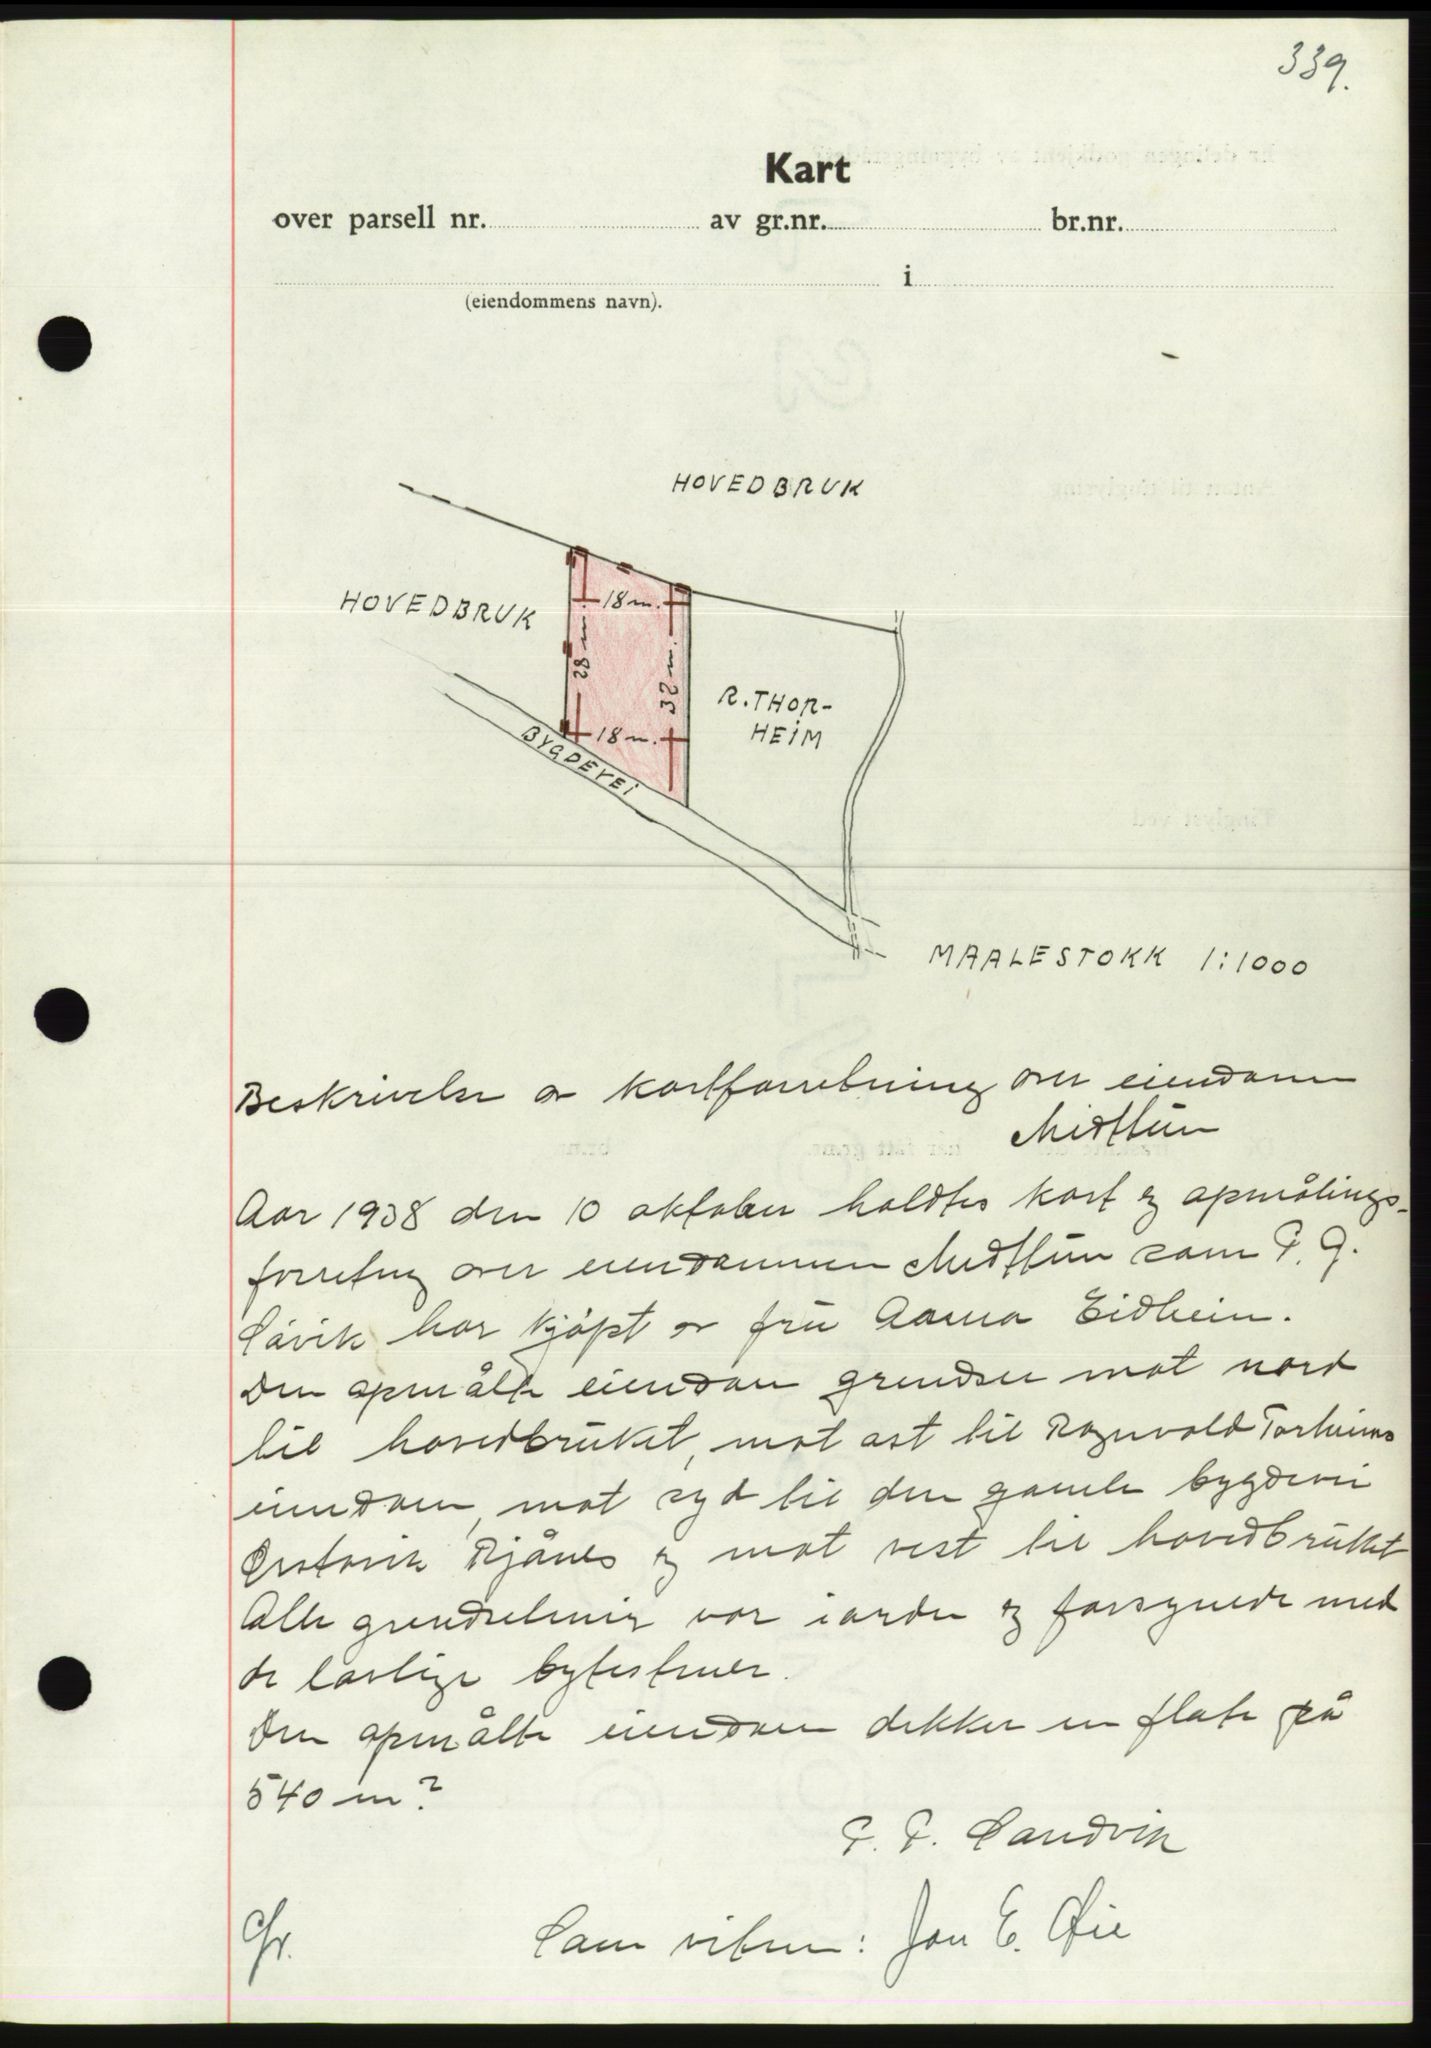 339.
Kart
over parsell nr. av gr.nr. br.nr.
i
(eiendommens navn).
HOVEDBRUK
HOVEDBRUK
18 m.
28 m.
32 m.
R. THOR-
HEIM
18 m.
BYGDEVEI
MAALESTOKK 1:1000
Beskrivelse av kartforretning over eiendom
Midttun
Aar 1938 den 10 oktober holdtes kart og opmålings-
forretng over eiendommen Midttun som P. J.
har kjöpt av fru Aasna Eidheim.
Den opmålte eiendom grendser mot nord
til hovedbruket, mot ost til Ragnvald Torheims
eiendom, mot syd til den gamle bygdevei
og mot vest til hovedbruket
Alle grendselinier var iorden og forsynede med
de lovlige bytestener.
Den opmålte eiendom dekker en flate på
540 m²
P. P. Sandvik
Som vitne: Jon E. Øie